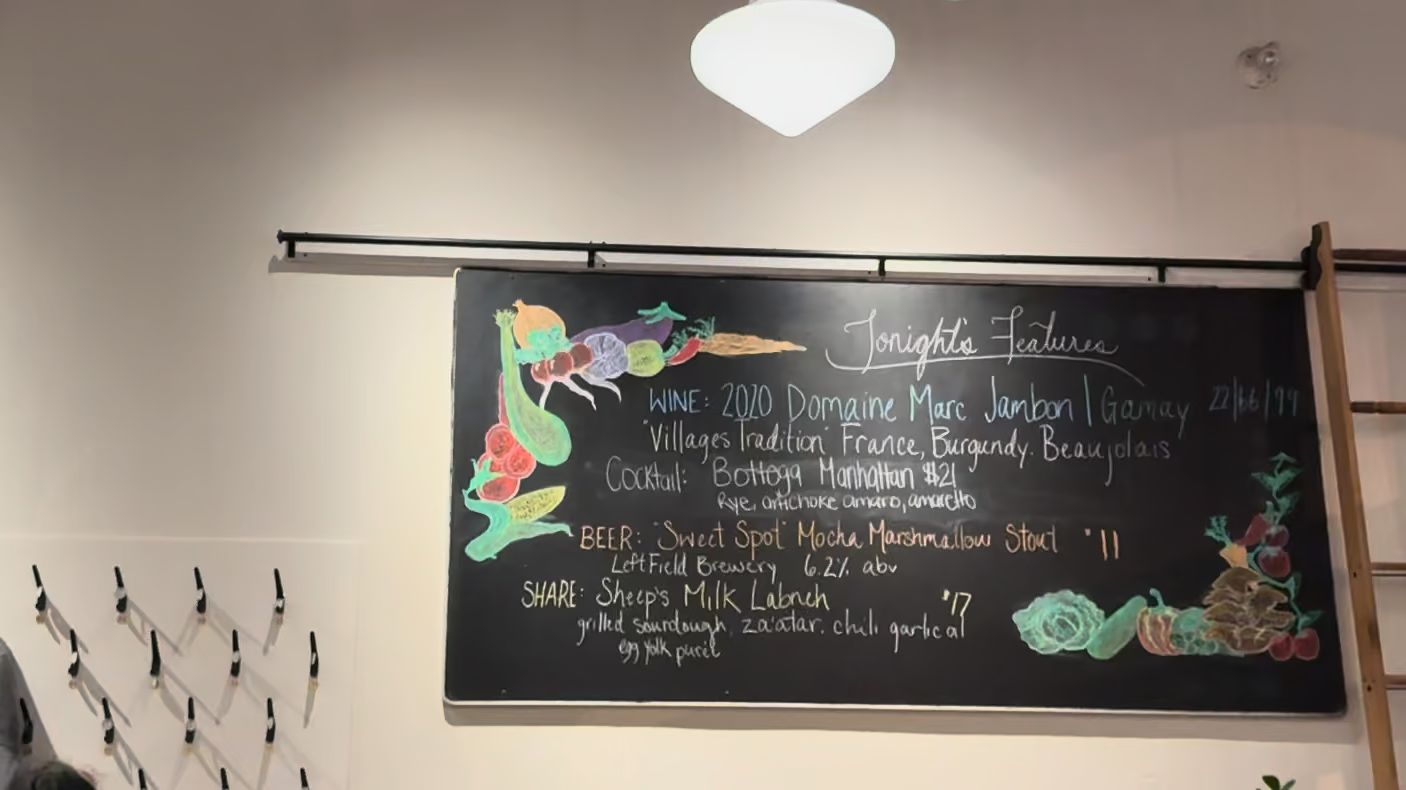 Tonight's Features
WINE: 2020 Domaine Marc Jambon | Gamay 22/66/99
"Villages Tradition" France, Burgundy. Beaujolais
Cocktail: Bottega Manhattan $21
Rye, artichoke amaro, amaretto
BEER: "Sweet Spot" Mocha Marshmallow Stout $11
Left Field Brewery 6.2% abv
SHARE: Sheep's Milk Labneh $17
grilled sourdough, za'atar, chili garlic
egg yolk